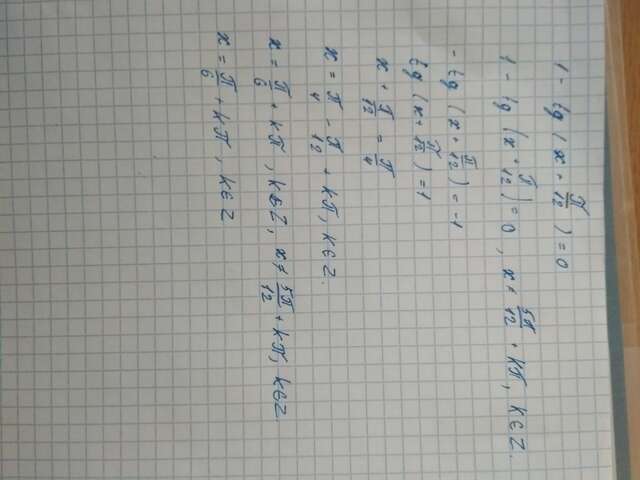 1 - tg (x + π/12) = 0
1 - tg (x + π/12) = 0, x ≠ 5π/12 + kπ, k∈Z.
- tg (x + π/12) = -1
tg (x + π/12) = 1
x + π/12 = π/4
x = π/4 - π/12 + kπ, k∈Z.
x = π/6 + kπ, k∈Z, x ≠ 5π/12 + kπ, k∈Z.
x = π/6 + kπ, k∈Z